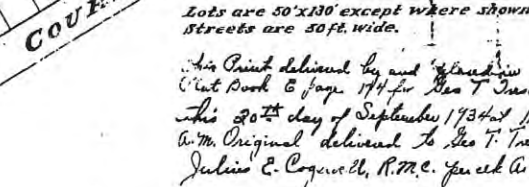 COUR
Lots are 50'x130' except where shown
Streets are 50ft. wide.
This Print delivered by and
Plat Book E page 174 for Geo T
this 20th day of September 1934 at
A.M. Original delivered to Geo T.
Julius E. Cogswell, R.M.C. per